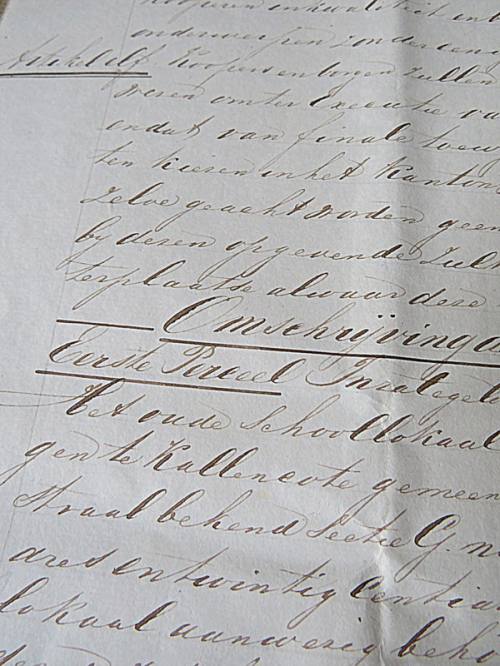 onderworpen zonder een
Artikel elf Koopers en borgen zullen
wezen om ter Executie va
ondat van finale toew
ten kiezen in het Kanton
zelve geacht worden geen
bij dezen op gevende zull
terplaatse alwaar deze
Omschrijving a
Eerste Perceel Inzetgel
Het oude Schoollokaal
gen te Kallencote gemeen
straal bekend Sectie G. n
ares en twintig Centia
lokaal aanwezig beho